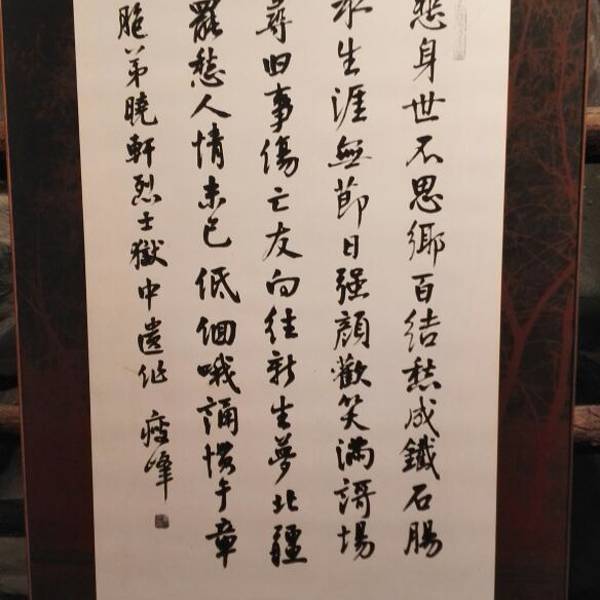 悲身世不思鄉百结愁成鐵石腸
生涯無節日强顔歡笑满謌場
尋旧事傷亡友向往新生夢北疆
罷愁人情未已低徊哦誦惜于章
胞弟曉軒烈士獄中遺作 痩峰